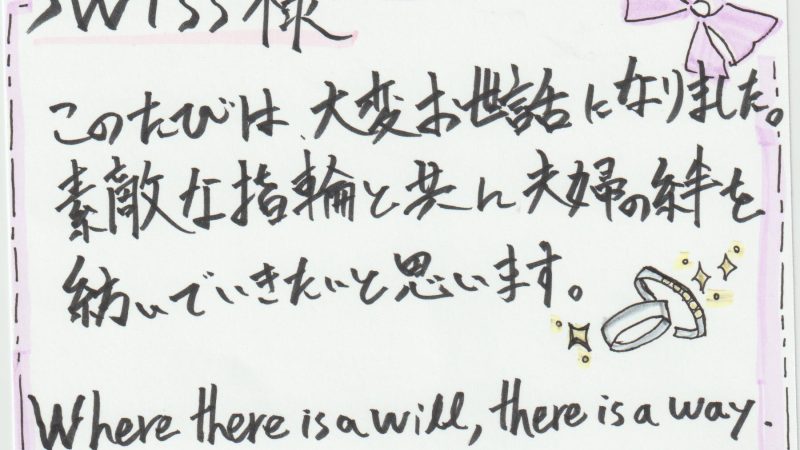 swiss様
このたびは、大変お世話になりました。
素敵な指輪と共に夫婦の絆を
紡いでいきたいと思います。
Where there is a will, there is a way.